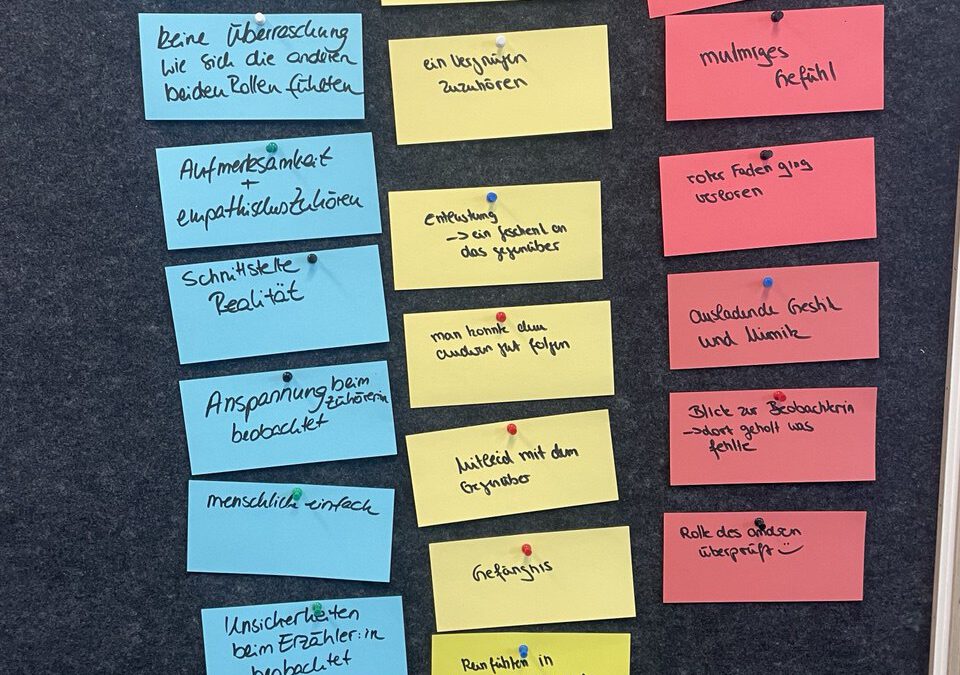 keine Überraschung
wie sich die anderen
beiden Rollen fühlten
Aufmerksamkeit
+
empathisches Zuhören
Schnittstelle
Realität
Anspannung beim
Zuhörer:in
beobachtet
menschlich einfach
Unsicherheiten
beim Erzähler:in
beobachtet
ein Vergnügen
zuzuhören
entlastung
-> ein Geschenk an
das gegenüber
man konnte dem
anderen gut folgen
Mitleid mit dem
Gegenüber
Gefängnis
Reinfühlen in
mulmiges
Gefühl
roter Faden ging
verloren
ausladende Gestik
und Mimik
Blick zur Beobachterin
-> dort geholt was
fehlte
Rolle des anderen
überprüft